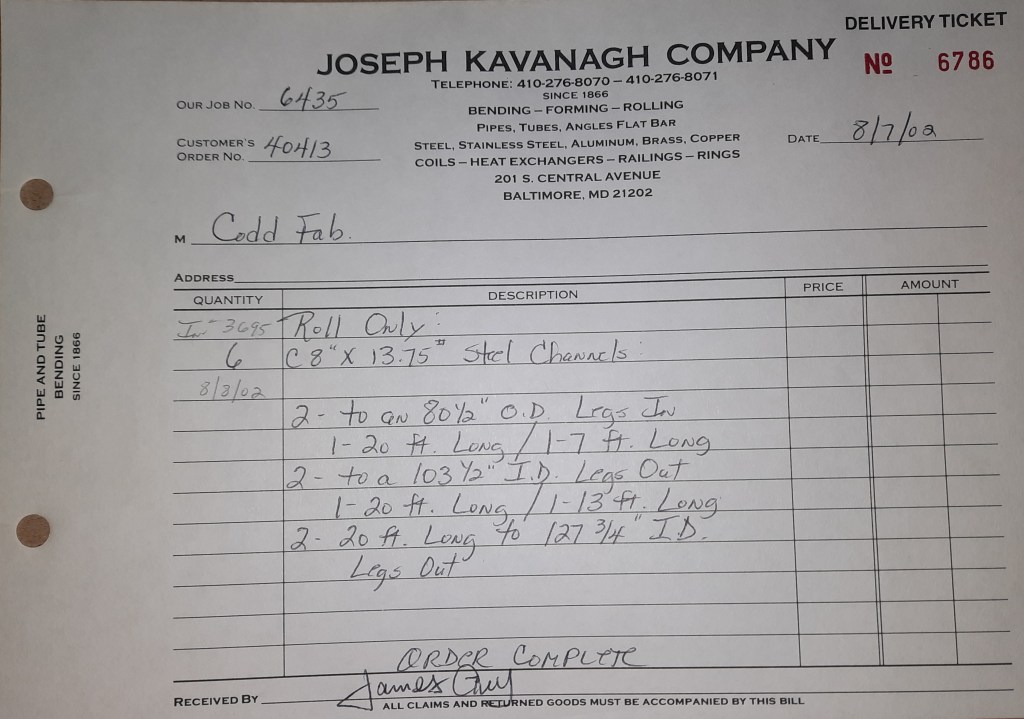 DELIVERY TICKET
JOSEPH KAVANAGH COMPANY
Nº 6786
TELEPHONE: 410-276-8070 – 410-276-8071
SINCE 1866
BENDING – FORMING – ROLLING
PIPES, TUBES, ANGLES FLAT BAR
STEEL, STAINLESS STEEL, ALUMINUM, BRASS, COPPER
COILS – HEAT EXCHANGERS – RAILINGS – RINGS
201 S. CENTRAL AVENUE
BALTIMORE, MD 21202
OUR JOB NO. 6435
CUSTOMER'S
ORDER NO. 40413
DATE 8/7/02
M Codd Fab.
ADDRESS
QUANTITY DESCRIPTION PRICE AMOUNT
3695 Roll Only:
6 C 8" X 13.75# Steel Channels:
8/8/02
2 - to an 80 1/2" O.D. Legs In
1 - 20 ft. Long / 1 - 7 ft. Long
2 - to a 103 1/2" I.D. Legs Out
1 - 20 ft. Long / 1 - 13 ft. Long
2 - 20 ft. Long to 127 3/4" I.D.
Legs Out
ORDER COMPLETE
RECEIVED BY James
ALL CLAIMS AND RETURNED GOODS MUST BE ACCOMPANIED BY THIS BILL
PIPE AND TUBE
BENDING
SINCE 1866